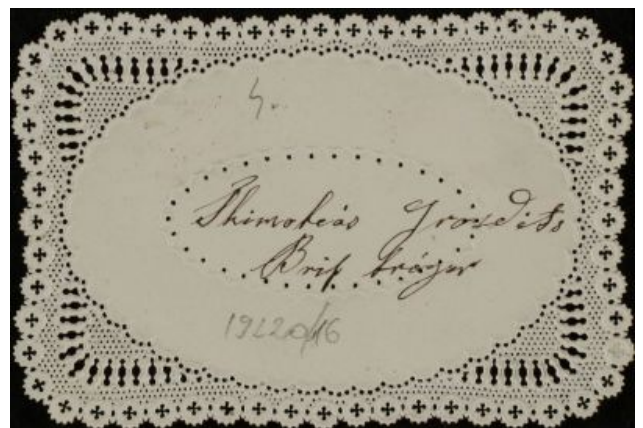 4.
Thimoteás Grósdits
Brif tráger
1922a/16